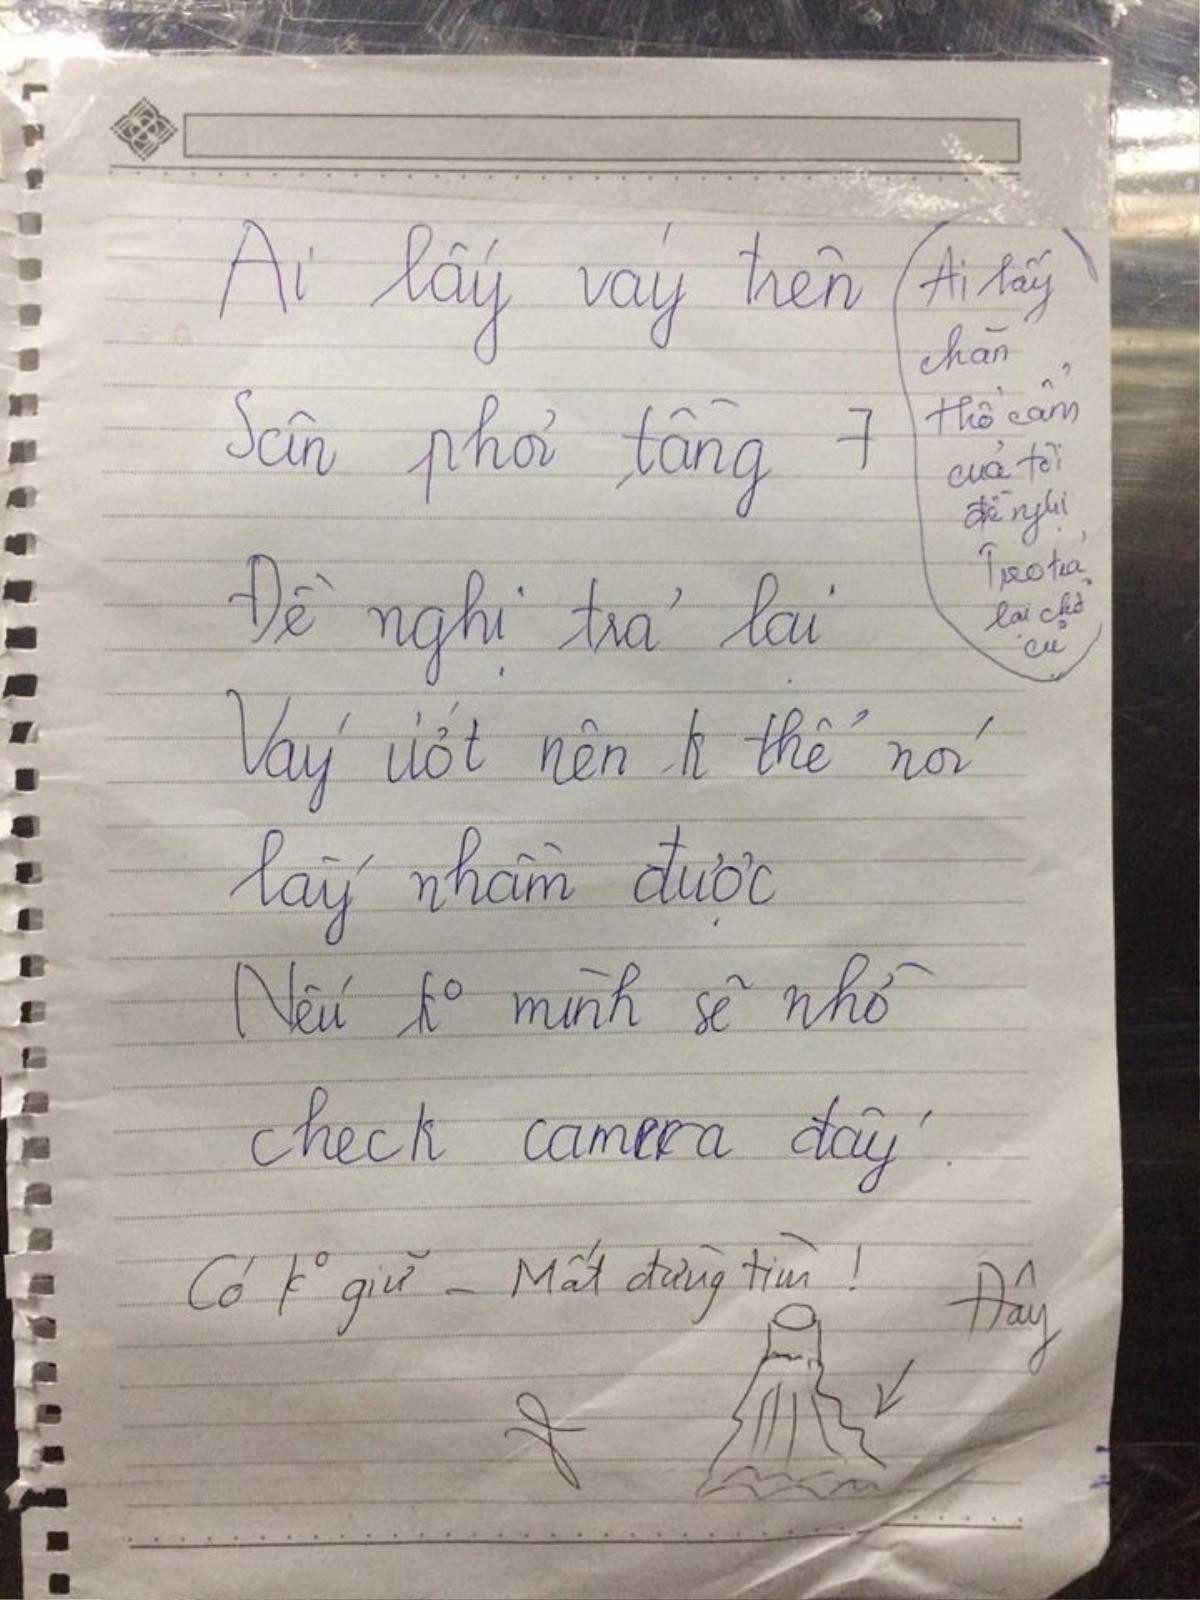 Ai lấy váy trên
Sân phơi tầng 7
Đề nghị trả lại
Váy ướt nên k thể nói
lấy nhầm được
Nếu k° mình sẽ nhờ
check camera đấy
Ai lấy
chăn
thổ cẩm
của tôi
đề nghị
Treo trả
lại chỗ
cũ
Có k° giữ - Mất đừng tìm !
Đây